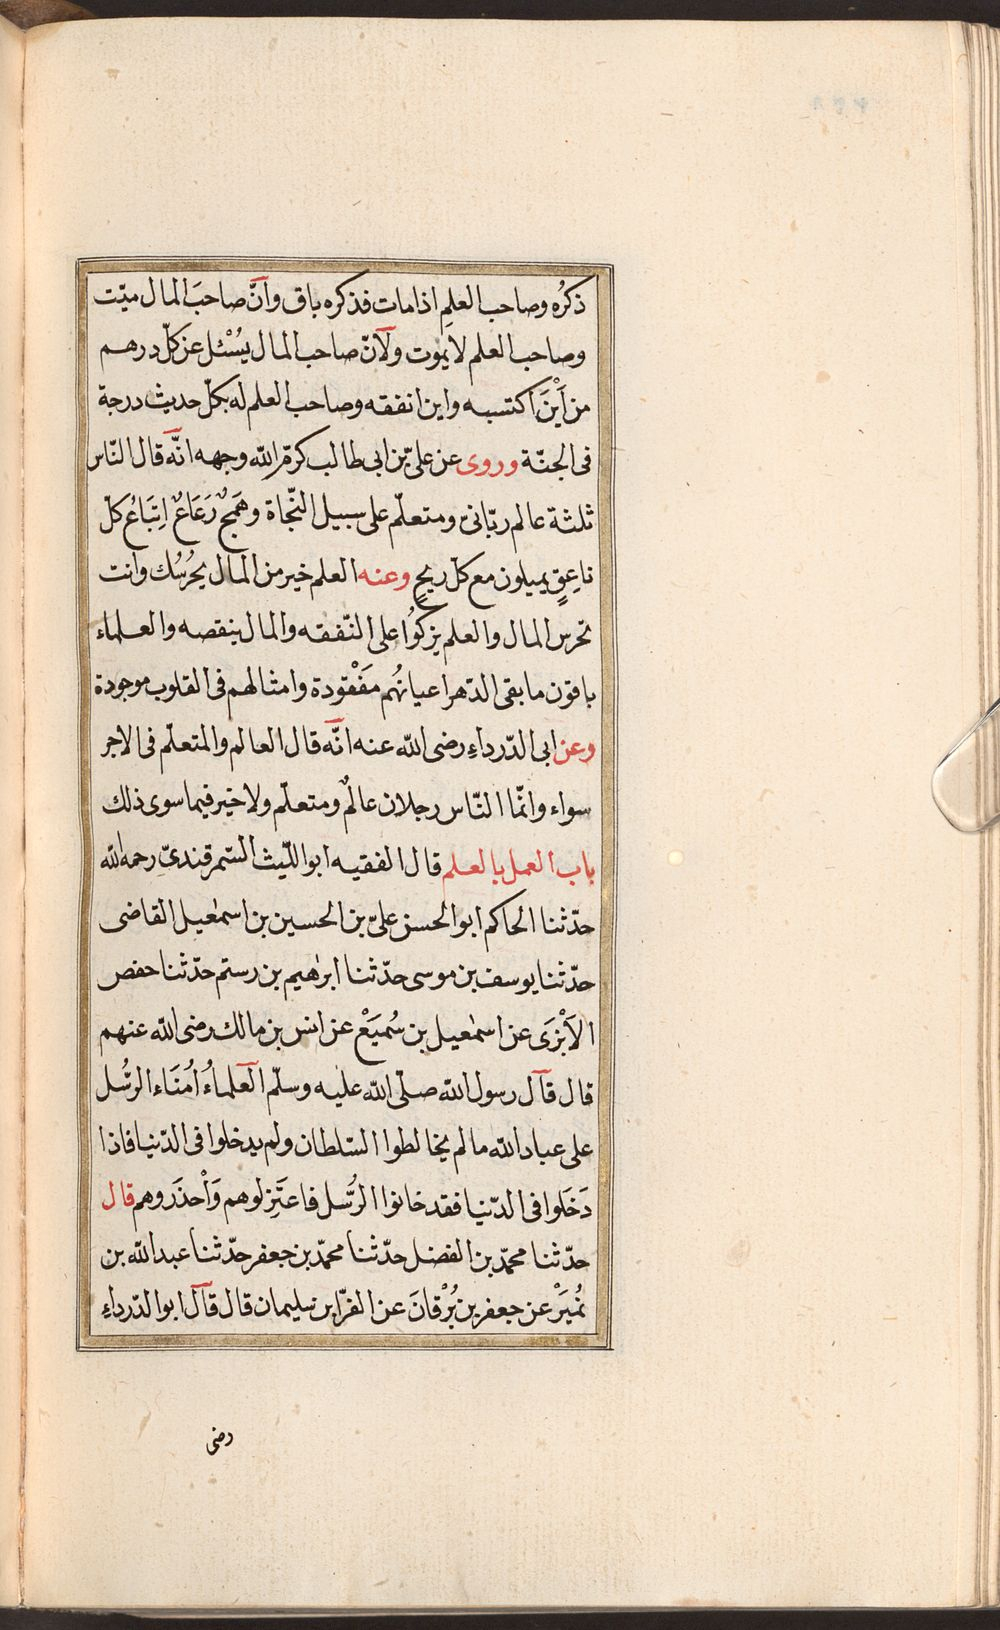 ذكرُه وصاحب العلمِ اذا مات فذكره باق وانّ صاحبَ المال ميّت
وصاحب العلم لا يموت ولانّ صاحب المال يُسْئل عن كلّ درهم
من أَيْنَ اكتسبه واين انفقه وصاحب العلم له بكلّ حديث درجة
فى الجنّة وروى عن علىّ بن ابى طالب كرّم الله وجهه انّه قال النّاس
ثلثة عالم ربّانىّ ومتعلّم على سبيل النّجاة وهَمَجٌ رَعَاعٌ اِتبَاعُ كلّ
ناعِقٍ يميلون مع كلّ ريحٍ وعنه العلم خير من المال يحرُسُك وانت
تحرس المال والعلم يزكُوا على النّفقه والمال ينقصه والعلماء
باقون ما بقى الدّهر اعيانُهُم مَفْقودة وامثالهم فى القلوب موجودة
وعن ابى الدّرداءِ رضى الله عنه انّه قال العالم والمتعلّم فى الاجر
سواء وانّما النّاس رجلان عالمٌ ومتعلّم ولا خير فيما سوى ذلك
باب العمل بالعلم قال الفقيه ابو اللّيث السّمرقندىّ رحمه الله
حدّثنا الحاكم ابو الحسن علىّ بن الحسين بن اسمعيل القاضى
حدّثنا يوسف بن موسى حدّثنا ابرهيم بن رستم حدّثنا حفص
الاَبْزَى عن اسمعيل بن سُمَيَعْ عن انس بن مالك رضى الله عنهم
قال قال رسول الله صلّى الله عليه وسلّم العلماءُ اُمنَاء الرسُّل
على عباد الله ما لم يخالطوا السّلطان ولم يدخلوا فى الدّنيا فاذا
دَخَلوا فى الدّنيا فقد خانوا الرسُّل فاعتَزِلوهم وَاْحذَروهم قال
حدّثنا محمّد بن الفضل حدّثنا محمّد بن جعفر حدّثنا عبد الله بن
نُمَيَرْ عن جعفر بن بُرْقانَ عن الفرّا بن سليمان قال قال ابو الدّرداءِ
رضى